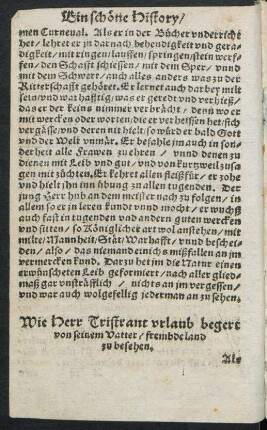 Ein schöne History/
men Curneual. Als er in der Bücher vnderricht
het/ lehret er jn darnach behendigkeit vnd gera-
digkeit/ mit ringen/ lauffen/ springen/ stein werf-
fen/ den Schafft schiessen/ mit dem Sper/ vnnd
mit dem Schwert/ auch alles anders was zu der
Ritterschafft gehöret. Er lernet auch darbey milt
sein/ vnd warhafftig/ was er geredt vnd verhieß/
das er der keins nimmer verbrächt/ denn wo er
mit wercken oder worten/ die er verheissen het/ sich
vergässe/ vnd deren nit hielt/ so würd er bald Gott
vnd der Welt vnmär. Er befahle jm auch in son-
derheit alle Frawen zu ehren/ vnnd denen zu
dienen mit Leib vnd gut/ vnd von kurtzweil zusa-
gen mit züchten. Er kehret allen fleiß für/ er zohe
vnd hielt jhn inn übung zu allen tugenden. Der
jung Herr hub an dem meister nach zu folgen/ in
allem so er jn leren kund vnnd mocht/ er wuchß
auch fast in tugenden vnd andern guten wercken
vnd sitten/ so Königlicher art wol anstehen/ mit
milte/ Mannheit/ Stät/ Warhafft/ vnnd beschei-
den/ also/ das niemand einichs mißfallen an jm
vermercken kund. Darzu het jm die Natur einen
erwünscheten Leib geformiert/ nach aller glied-
maß gar vnsträfflich/ nichts an jm vergessen/
vnd war auch wolgefellig jederman an zu sehen.
Wie Herr Tristrant vrlaub begert
von seinem Vatter/ frembde land
zu besehen.
Als